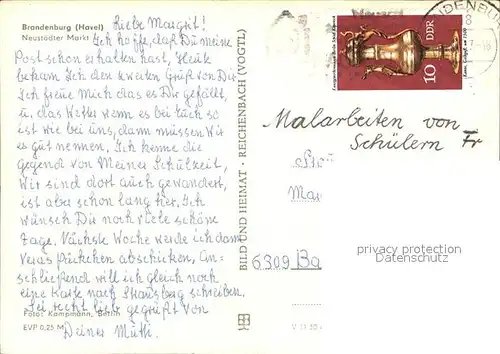 Brandenburg (Havel)
Neustädter Markt
Liebe Margrit!
Ich hoffe, daß Du meine
Post schon erhalten hast, Heute
bekam Ich den zweiten Gruß von Dir
Ich freue mich das es Dir gefällt,
u, das Wetter wenn es bei Euch so
ist wie bei uns, dann müssen Wir
es gut nennen. Ich kenne die
Gegend von Meiner Schulzeit,
Wir sind dort auch gewandert,
ist aba schon lang her. Ich
wünsch Dir noch viele schöne
Tage. Nächste Woche werde ich dann
Veras Päckchen abschicken, An-
schließend will ich gleich noch
eine Karte nach Strausberg schreiben.
Sei recht lieb gegrüßt von
Deiner Mutti.
Foto: Kampmann, Berlin
EVP 0,25 M
BILD UND HEIMAT · REICHENBACH (VOGTL)
DDR
10
Malarbeiten von
Schülern Fr
Mar
6309 Ba
protected copyright
Datenschutz